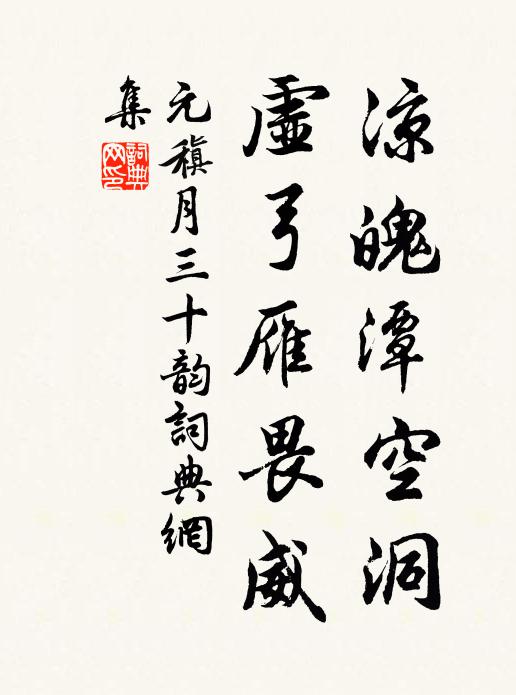 凉魄潭空洞
虛弓雁畏威
元稹月三十韵詞典網
集
詞典网印